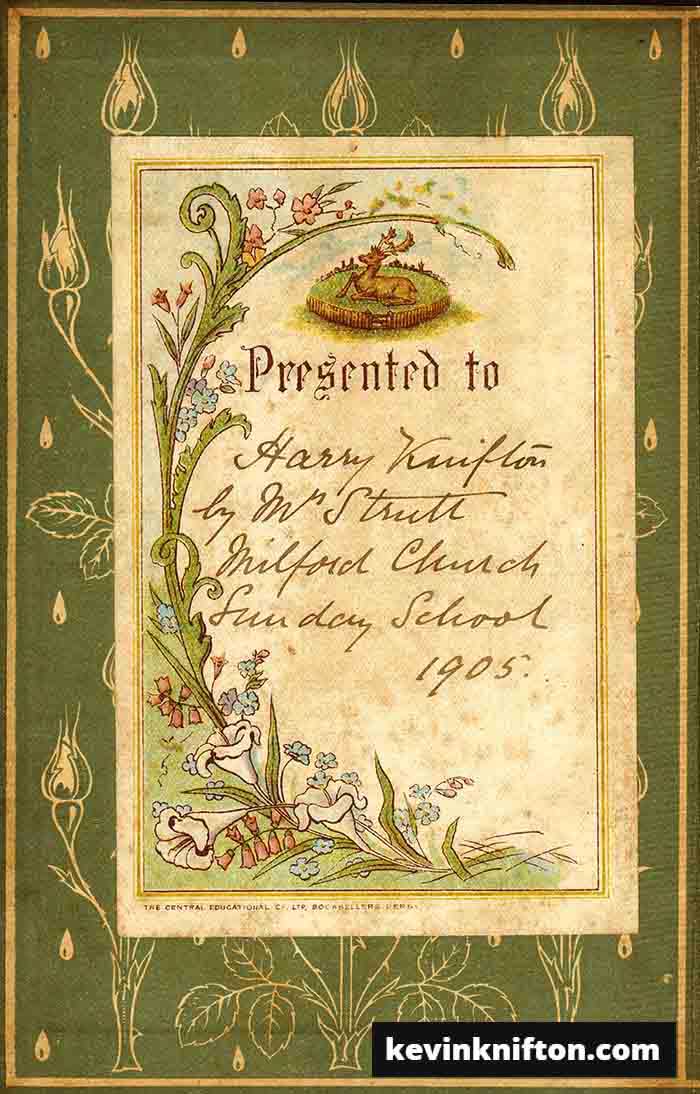 Presented to
Harry Knifton
by Mrs Strutt
Milford Church
Sunday School
1905.
THE CENTRAL EDUCATIONAL Co. LTD, BOOKSELLERS, DERBY.
kevinknifton.com